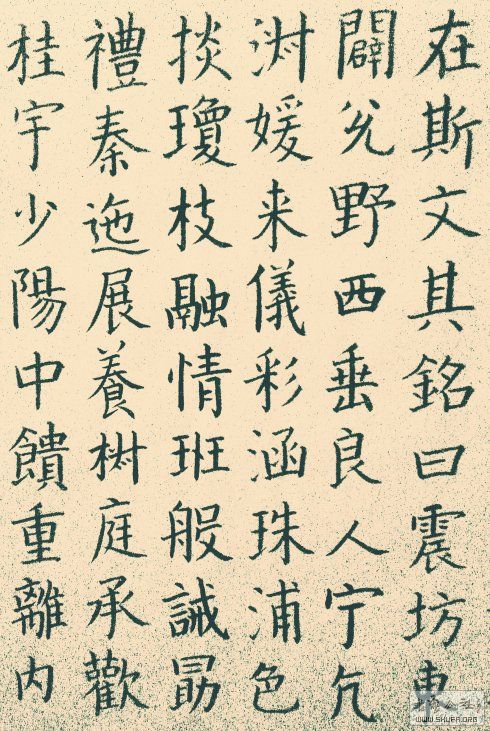 在斯文其銘曰震坊東
闢兌野西垂良人宁
淑媛来儀彩涵珠浦色
掞瓊枝融情班般誡勗
禮秦迤展養椒庭承歡
桂宇少陽中饋重離内
WWW.SHUFA.ORG